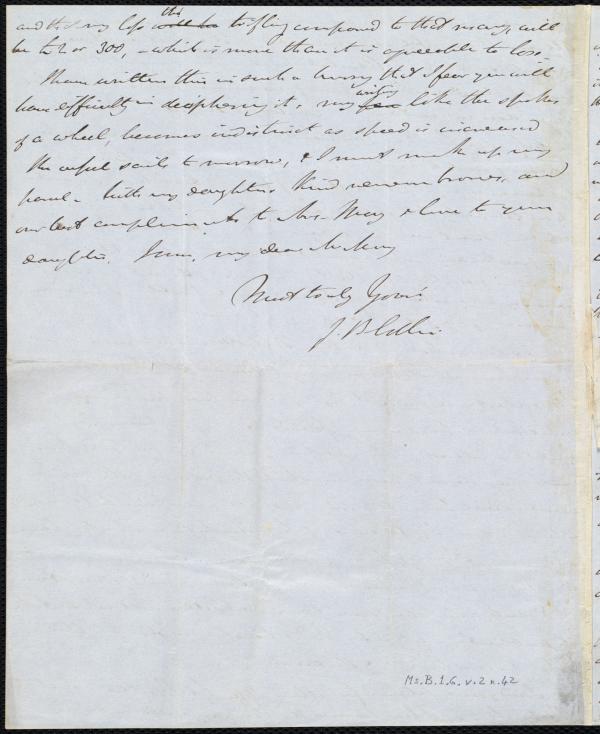 and that my loss tho trifling compared to that of many, will
be £2 or 300, - which is more than it is agreeable to lose.
I have written this in such a hurry that I fear you will
have difficulty in deciphering it, my writing like the spokes
of a wheel, becomes indistinct as speed is increased
The vessel sails tomorrow, & I must make up my
parcel - with my daughters kind remembrances, and
our best compliments to Mrs. May & love to your
daughter. I am, my dear Mr May
Most truly Yours
J. B. Estlin
Ms. B. 1. 6. v. 2 n. 42